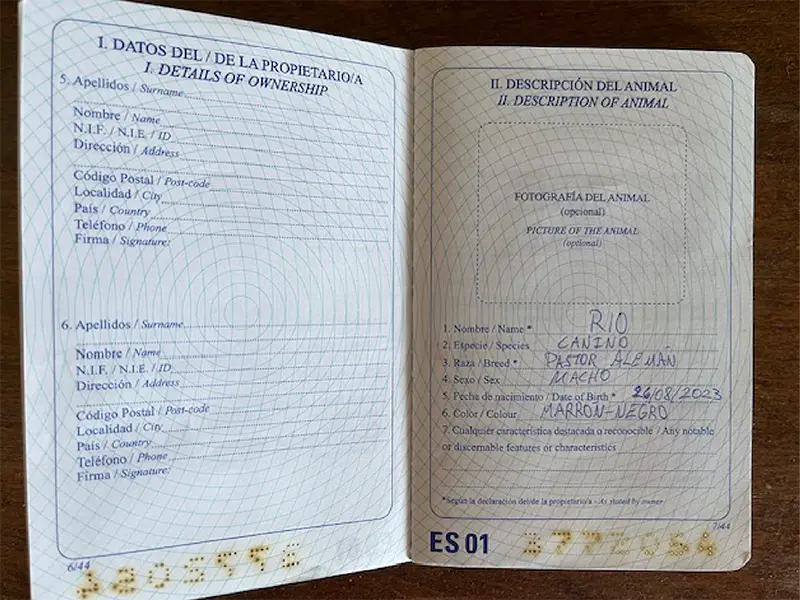 I. DATOS DEL / DE LA PROPIETARIO/A
I. DETAILS OF OWNERSHIP
5. Apellidos / Surname
Nombre / Name
N.I.F. / N.I.E. / ID
Dirección / Address
Código Postal / Post-code
Localidad / City
País / Country
Teléfono / Phone
Firma / Signature:
6. Apellidos / Surname
Nombre / Name
N.I.F. / N.I.E. / ID
Dirección / Address
Código Postal / Post-code
Localidad / City
País / Country
Teléfono / Phone
Firma / Signature:
6/44
II. DESCRIPCIÓN DEL ANIMAL
II. DESCRIPTION OF ANIMAL
FOTOGRAFÍA DEL ANIMAL
(opcional)
PICTURE OF THE ANIMAL
(optional)
1. Nombre / Name * RIO
2. Especie / Species CANINO
3. Raza / Breed * PASTOR ALEMÁN
4. Sexo / Sex MACHO
5. Fecha de nacimiento / Date of Birth * 26/08/2023
6. Color / Colour MARRON-NEGRO
7. Cualquier característica destacada o reconocible / Any notable
or discernable features or characteristics
*Según la declaración del/de la propietario/a - As stated by owner
7/44
ES 01